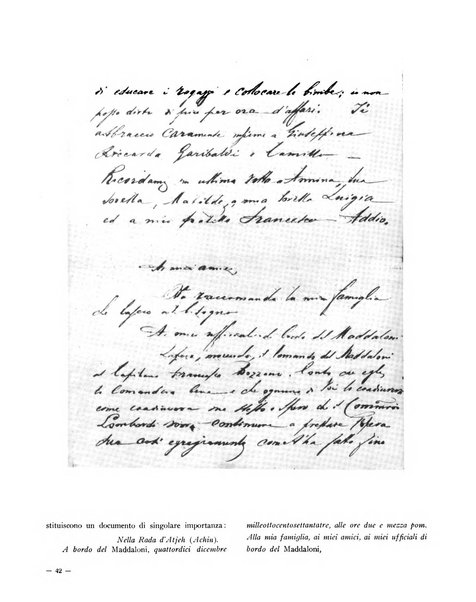 di educare i ragazzi e collocare le bimbe; io non
posso dirti di più per ora d'affari. Ti
abbraccio caramente insieme a Giuseppina
Riccarda Garibaldi e Camillo
Ricordami in ultima volta a Annina, tua
sorella, Matilde, a mia sorella Luigia
ed a mio fratello Francesco – Addio.
Ai miei amici,
Vi raccomando la mia famiglia
che lascio al bisogno
Ai miei ufficiali di bordo del Maddaloni
Lascio, morendo, il comando del Maddaloni
al Capitano Francesco Bozzone. Conto che egli
lo comanderà bene e che ognuno di Voi lo coadiuverà
come coadiuvava me stesso e spero che il
Lombardi vorrà continuare a prestare l'opera
sua così egregiamente come ha fatto fino
stituiscono un documento di singolare importanza:
Nella Rada d'Atjeh (Achin).
A bordo del Maddaloni, quattordici dicembre
milleottocentosettantatre, alle ore due e mezza pom.
Alla mia famiglia, ai miei amici, ai miei ufficiali di
bordo del Maddaloni,
— 42 —